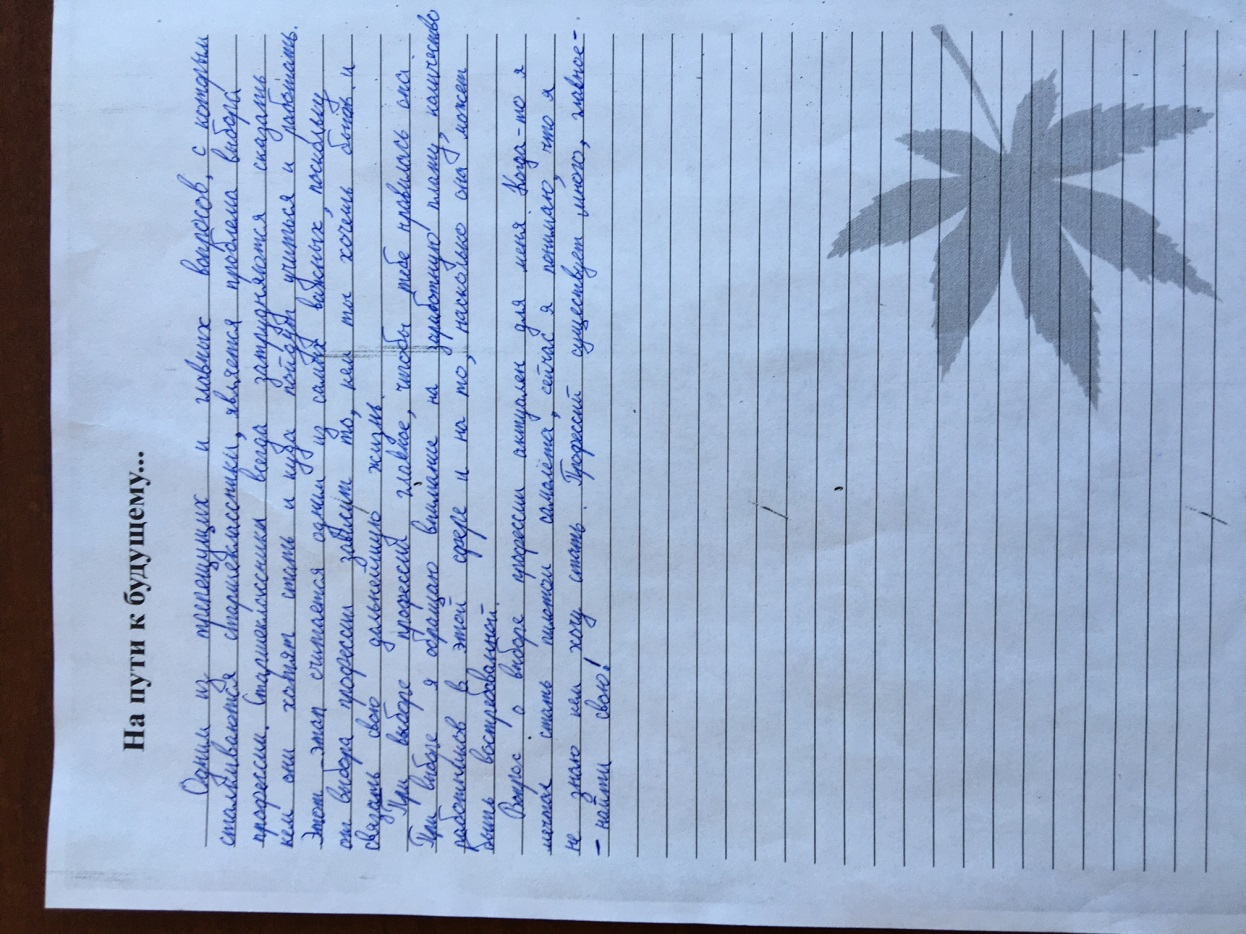 На пути к будущему...
Одним из присущих и главных вопросов, с которым
сталкиваются старшеклассники, является проблема выбора
профессии. Старшеклассники всегда затрудняются сказать
кем они хотят стать и куда пойдут учиться и работать.
Этот этап считается одним из самых важных, поскольку
от выбора профессии зависит то, кем ты хочешь быть и
связать свою дальнейшую жизнь.
При выборе профессий главное, чтобы тебе нравилась она
При выборе я обращаю внимание на заработную плату, количество
работающих в этой сфере и на то, насколько она может
быть востребованней.
Вопрос о выборе профессии актуален для меня. Когда-то я
мечтал стать пилотом самолёта, сейчас я понимаю, что я
не знаю кем хочу стать. Профессий существует много, главное-
- найти свою!